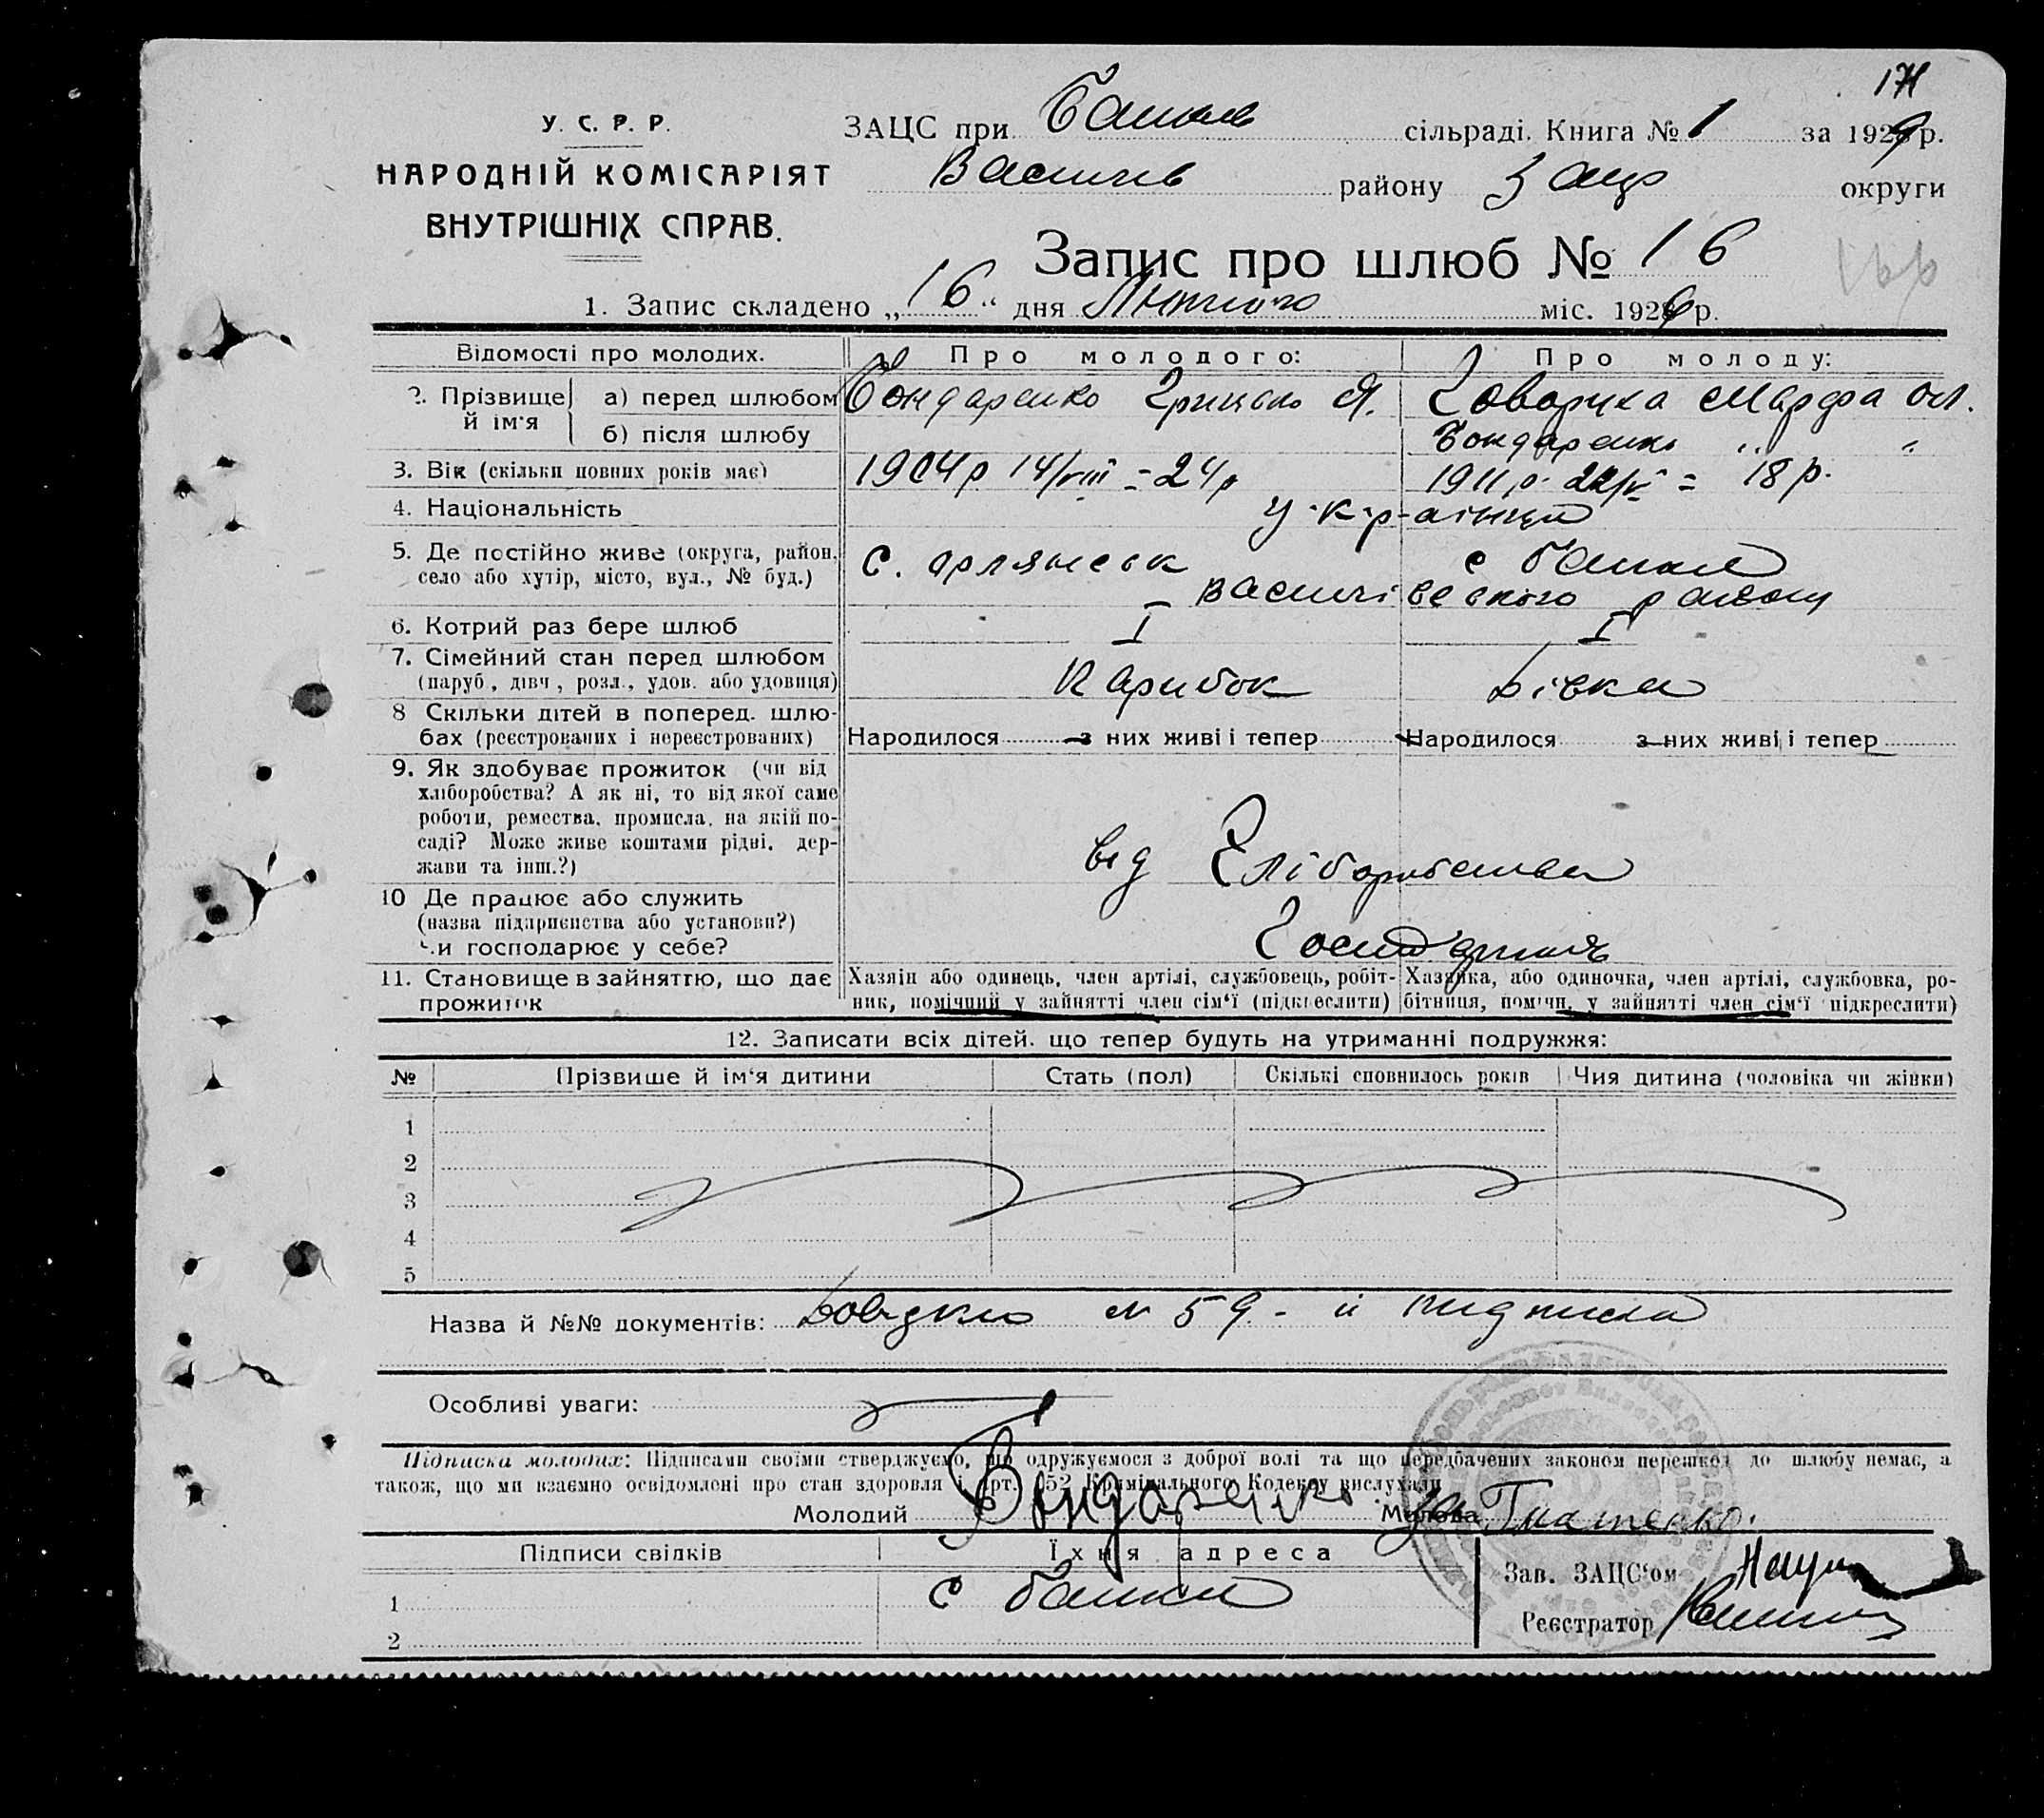 171
У. С. Р. Р.
НАРОДНІЙ КОМІСАРІЯТ
ВНУТРІШНІХ СПРАВ.
ЗАЦС при сільраді. Книга № 1 за 1929 р.
району Зап округи
Запис про шлюб № 16
166
1. Запис складено „16“ дня Лютого міс. 1929 р.
Відомості про молодих. Про молодого: Про молоду:
2. Прізвище й ім'я а) перед шлюбом Бондаренко Грицько Я. Говоруха Марфа Ол.
б) після шлюбу Бондаренко „ „
3. Вік (скільки повних років має) 1904 р 14/VIII = 24 р 1911 р. = 18 р.
4. Національність українци
5. Де постійно живе (округа, район, село або хутір, місто, вул., № буд.) с. Орлянськ с
району
6. Котрий раз бере шлюб I I
7. Сімейний стан перед шлюбом
(паруб., дівч., розл., удов. або удовиця) Парубок Дівка
8 Скільки дітей в поперед. шлюбах (реєстрованих і нереєстрованих) Народилося — з них живі і тепер Народилося з них живі і тепер
9. Як здобуває прожиток (чи від
хліборобства? А як ні, то від якої саме
роботи, ремества, промисла, на якій по-
саді? Може живе коштами рідні, дер-
жави та інш.?) від Хліборобства
10 Де працює або служить
(назва підприємства або установи?)
Чи господарює у себе?
11. Становище в зайняттю, що дає прожиток
Хазяїн або одинець, член артілі, службовець, робіт-
ник, помічний у зайнятті член сім'ї (підкреслити)
Хазяйка, або одиночка, член артілі, службовка, ро-
бітниця, помічн. у зайнятті член сім'ї підкреслити)
12. Записати всіх дітей, що тепер будуть на утриманні подружжя:
№ Прізвище й ім'я дитини Стать (пол) Скількі сповнилось років Чия дитина (чоловіка чи жінки)
1
2
3
4
5
Назва й №№ документів: Довідка № 59 - и
Особливі уваги:
Підписка молодих: Підписами своїми стверджуємо, що одружуємося з доброї волі та що передбачених законом перешкод до шлюбу немає, а
також, що ми взаємно освідомлені про стан здоров'я і арт. 152 Кримінального Кодексу вислухали
Молодий Бондаренко Молода за Гнатенко.
Підписи свідків Їхня адреса
1 с
2
Зав. ЗАЦС'ом
Реєстратор